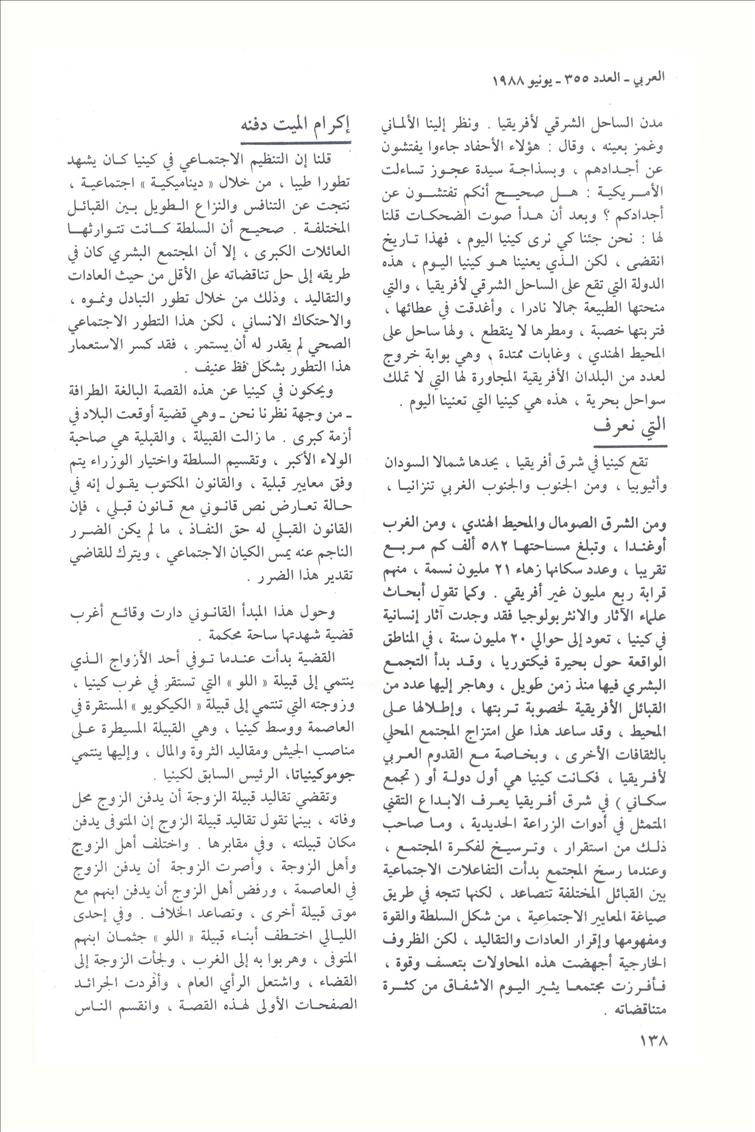 العربي ـ العدد ٣٥٥ ـ يونيو ١٩٨٨
مدن الساحل الشرقي لأفريقيا . ونظر إلينا الألماني
وغمز بعينه ، وقال : هؤلاء الأحفاد جاءوا يفتشون
عن أجدادهم ، وبسذاجة سيدة عجوز تساءلت
الأمريكية : هل صحيح أنكم تفتشون عن
أجدادكم ؟ وبعد أن هدأ صوت الضحكات قلنا
لها : نحن جئنا كي نرى كينيا اليوم ، فهذا تاريخ
انقضى ، لكن الذي يعنينا هو كينيا اليوم ، هذه
الدولة التي تقع على الساحل الشرقي لأفريقيا ، والتي
منحتها الطبيعة جمالا نادرا ، وأغدقت في عطائها ،
فتربتها خصبة ، ومطرها لا ينقطع ، ولها ساحل على
المحيط الهندي ، وغابات ممتدة ، وهي بوابة خروج
لعدد من البلدان الأفريقية المجاورة لها التي لا تملك
سواحل بحرية ، هذه هي كينيا التي تعنينا اليوم .
التي نعرف
تقع كينيا في شرق أفريقيا ، يحدها شمالا السودان
وأثيوبيا ، ومن الجنوب والجنوب الغربي تنزانيا ،
ومن الشرق الصومال والمحيط الهندي ، ومن الغرب
أوغندا ، وتبلغ مساحتها ٥٨٢ ألف كم مربع
تقريبا ، وعدد سكانها زهاء ٢١ مليون نسمة ، منهم
قرابة ربع مليون غير أفريقي . وكما تقول أبحاث
علماء الآثار والانثربولوجيا فقد وجدت آثار إنسانية
في كينيا ، تعود إلى حوالي ٢٠ مليون سنة ، في المناطق
الواقعة حول بحيرة فيكتوريا ، وقد بدأ التجمع
البشري فيها منذ زمن طويل ، وهاجر إليها عدد من
القبائل الأفريقية لخصوبة تربتها ، وإطلالها على
المحيط ، وقد ساعد هذا على امتزاج المجتمع المحلي
بالثقافات الأخرى ، وبخاصة مع القدوم العربي
لأفريقيا ، فكانت كينيا هي أول دولة أو ( تجمع
سكاني ) في شرق أفريقيا يعرف الابداع التقني
المتمثل في أدوات الزراعة الحديدية ، وما صاحب
ذلك من استقرار ، وترسيخ لفكرة المجتمع ،
وعندما رسخ المجتمع بدأت التفاعلات الاجتماعية
بين القبائل المختلفة تتصاعد ، لكنها تتجه في طريق
صياغة المعايير الاجتماعية ، من شكل السلطة والقوة
ومفهومها وإقرار العادات والتقاليد ، لكن الظروف
الخارجية أجهضت هذه المحاولات بتعسف وقوة ،
فأفرزت مجتمعا يثير اليوم الاشفاق من كثرة
متناقضاته .
إكرام الميت دفنه
قلنا إن التنظيم الاجتماعي في كينيا كان يشهد
تطورا طيبا ، من خلال « ديناميكية » اجتماعية ،
نتجت عن التنافس والنزاع الطويل بين القبائل
المختلفة . صحيح أن السلطة كانت تتوارثها
العائلات الكبرى ، إلا أن المجتمع البشري كان في
طريقه إلى حل تناقضاته على الأقل من حيث العادات
والتقاليد ، وذلك من خلال تطور التبادل ونموه ،
والاحتكاك الانساني ، لكن هذا التطور الاجتماعي
الصحي لم يقدر له أن يستمر ، فقد كسر الاستعمار
هذا التطور بشكل فظ عنيف .
ويحكون في كينيا عن هذه القصة البالغة الطرافة
ـ من وجهة نظرنا نحن ـ وهي قضية أوقعت البلاد في
أزمة كبرى . ما زالت القبيلة ، والقبلية هي صاحبة
الولاء الأكبر ، وتقسيم السلطة واختيار الوزراء يتم
وفق معايير قبلية ، والقانون المكتوب يقول إنه في
حالة تعارض نص قانوني مع قانون قبلي ، فإن
القانون القبلي له حق النفاذ ، ما لم يكن الضرر
الناجم عنه يمس الكيان الاجتماعي ، ويترك للقاضي
تقدير هذا الضرر .
وحول هذا المبدأ القانوني دارت وقائع أغرب
قضية شهدتها ساحة محكمة .
القضية بدأت عندما توفي أحد الأزواج الذي
ينتمي إلى قبيلة « اللو » التي تستقر في غرب كينيا ،
وزوجته التي تنتمي إلى قبيلة « الكيكويو » المستقرة في
العاصمة ووسط كينيا ، وهي القبيلة المسيطرة على
مناصب الجيش ومقاليد الثروة والمال ، وإليها ينتمي
جوموكينياتا، الرئيس السابق لكينيا .
وتقضي تقاليد قبيلة الزوجة أن يدفن الزوج محل
وفاته ، بينما تقول تقاليد قبيلة الزوج إن المتوفى يدفن
مكان قبيلته ، وفي مقابرها . واختلف أهل الزوج
وأهل الزوجة ، وأصرت الزوجة أن يدفن الزوج
في العاصمة ، ورفض أهل الزوج أن يدفن ابنهم مع
موتى قبيلة أخرى ، وتصاعد الخلاف . وفي إحدى
الليالي اختطف أبناء قبيلة « اللو » جثمان ابنهم
المتوفى ، وهربوا به إلى الغرب ، ولجأت الزوجة إلى
القضاء ، واشتعل الرأي العام ، وأفردت الجرائد
الصفحات الأولى لهذه القصة ، وانقسم الناس
١٣٨